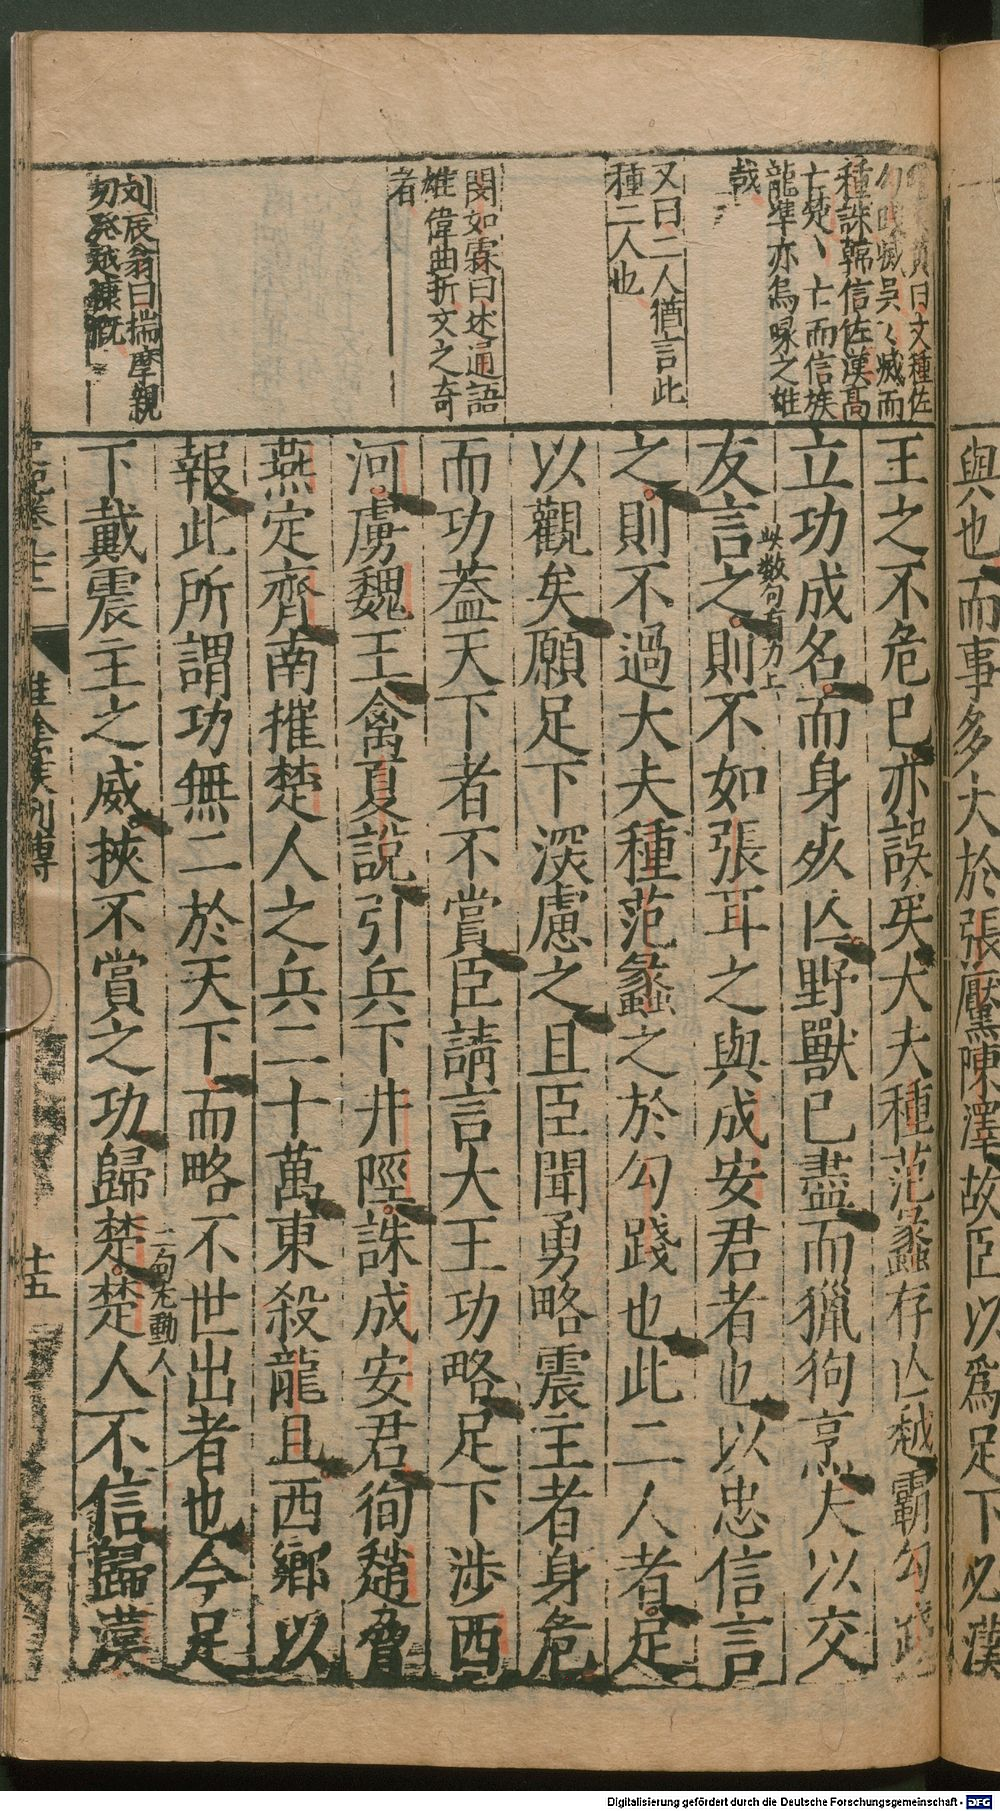 與也而事多大於張黶陳澤故臣以爲足下必漢
曰文種佐
勾踐滅吳〻滅而
種誅韓信佐漢高
亡楚〻亡而信族
龍準亦烏喙之雄
哉
又曰二人猶言此
種二人也
閔如霖曰述通語
雄偉曲折文之奇
者
刘辰翁曰揣摩親
切發越慷慨
王之不危已亦誤矣大夫種范蠡存亾越霸勾踐
立功成名而身死亾野獸已盡而獵狗烹夫以交
此数句有力上
友言之則不如張耳之與成安君者也以忠信言
之則不過大夫種范蠡之於勾踐也此二人者足
以觀矣願足下深慮之且臣聞勇略震主者身危
而功蓋天下者不賞臣請言大王功略足下涉西
河虜魏王禽夏說引兵下井陘誅成安君徇趙脅
燕定齊南摧楚人之兵二十萬東殺龍且西鄉以
報此所謂功無二於天下而略不世出者也今足
二句尤動人
下戴震主之威挾不賞之功歸楚楚人不信歸漢
淮陰侯列傳
十五
Digitalisierung gefördert durch die Deutsche Forschungsgemeinschaft - DFG